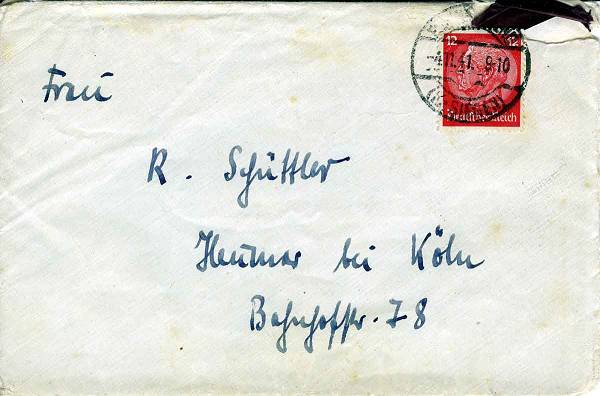 12 12
-4.11.41. 9-10
Deutsches Reich
Frau
R. Schüttler
Heumar bei Köln
Bahnhofstr. 78